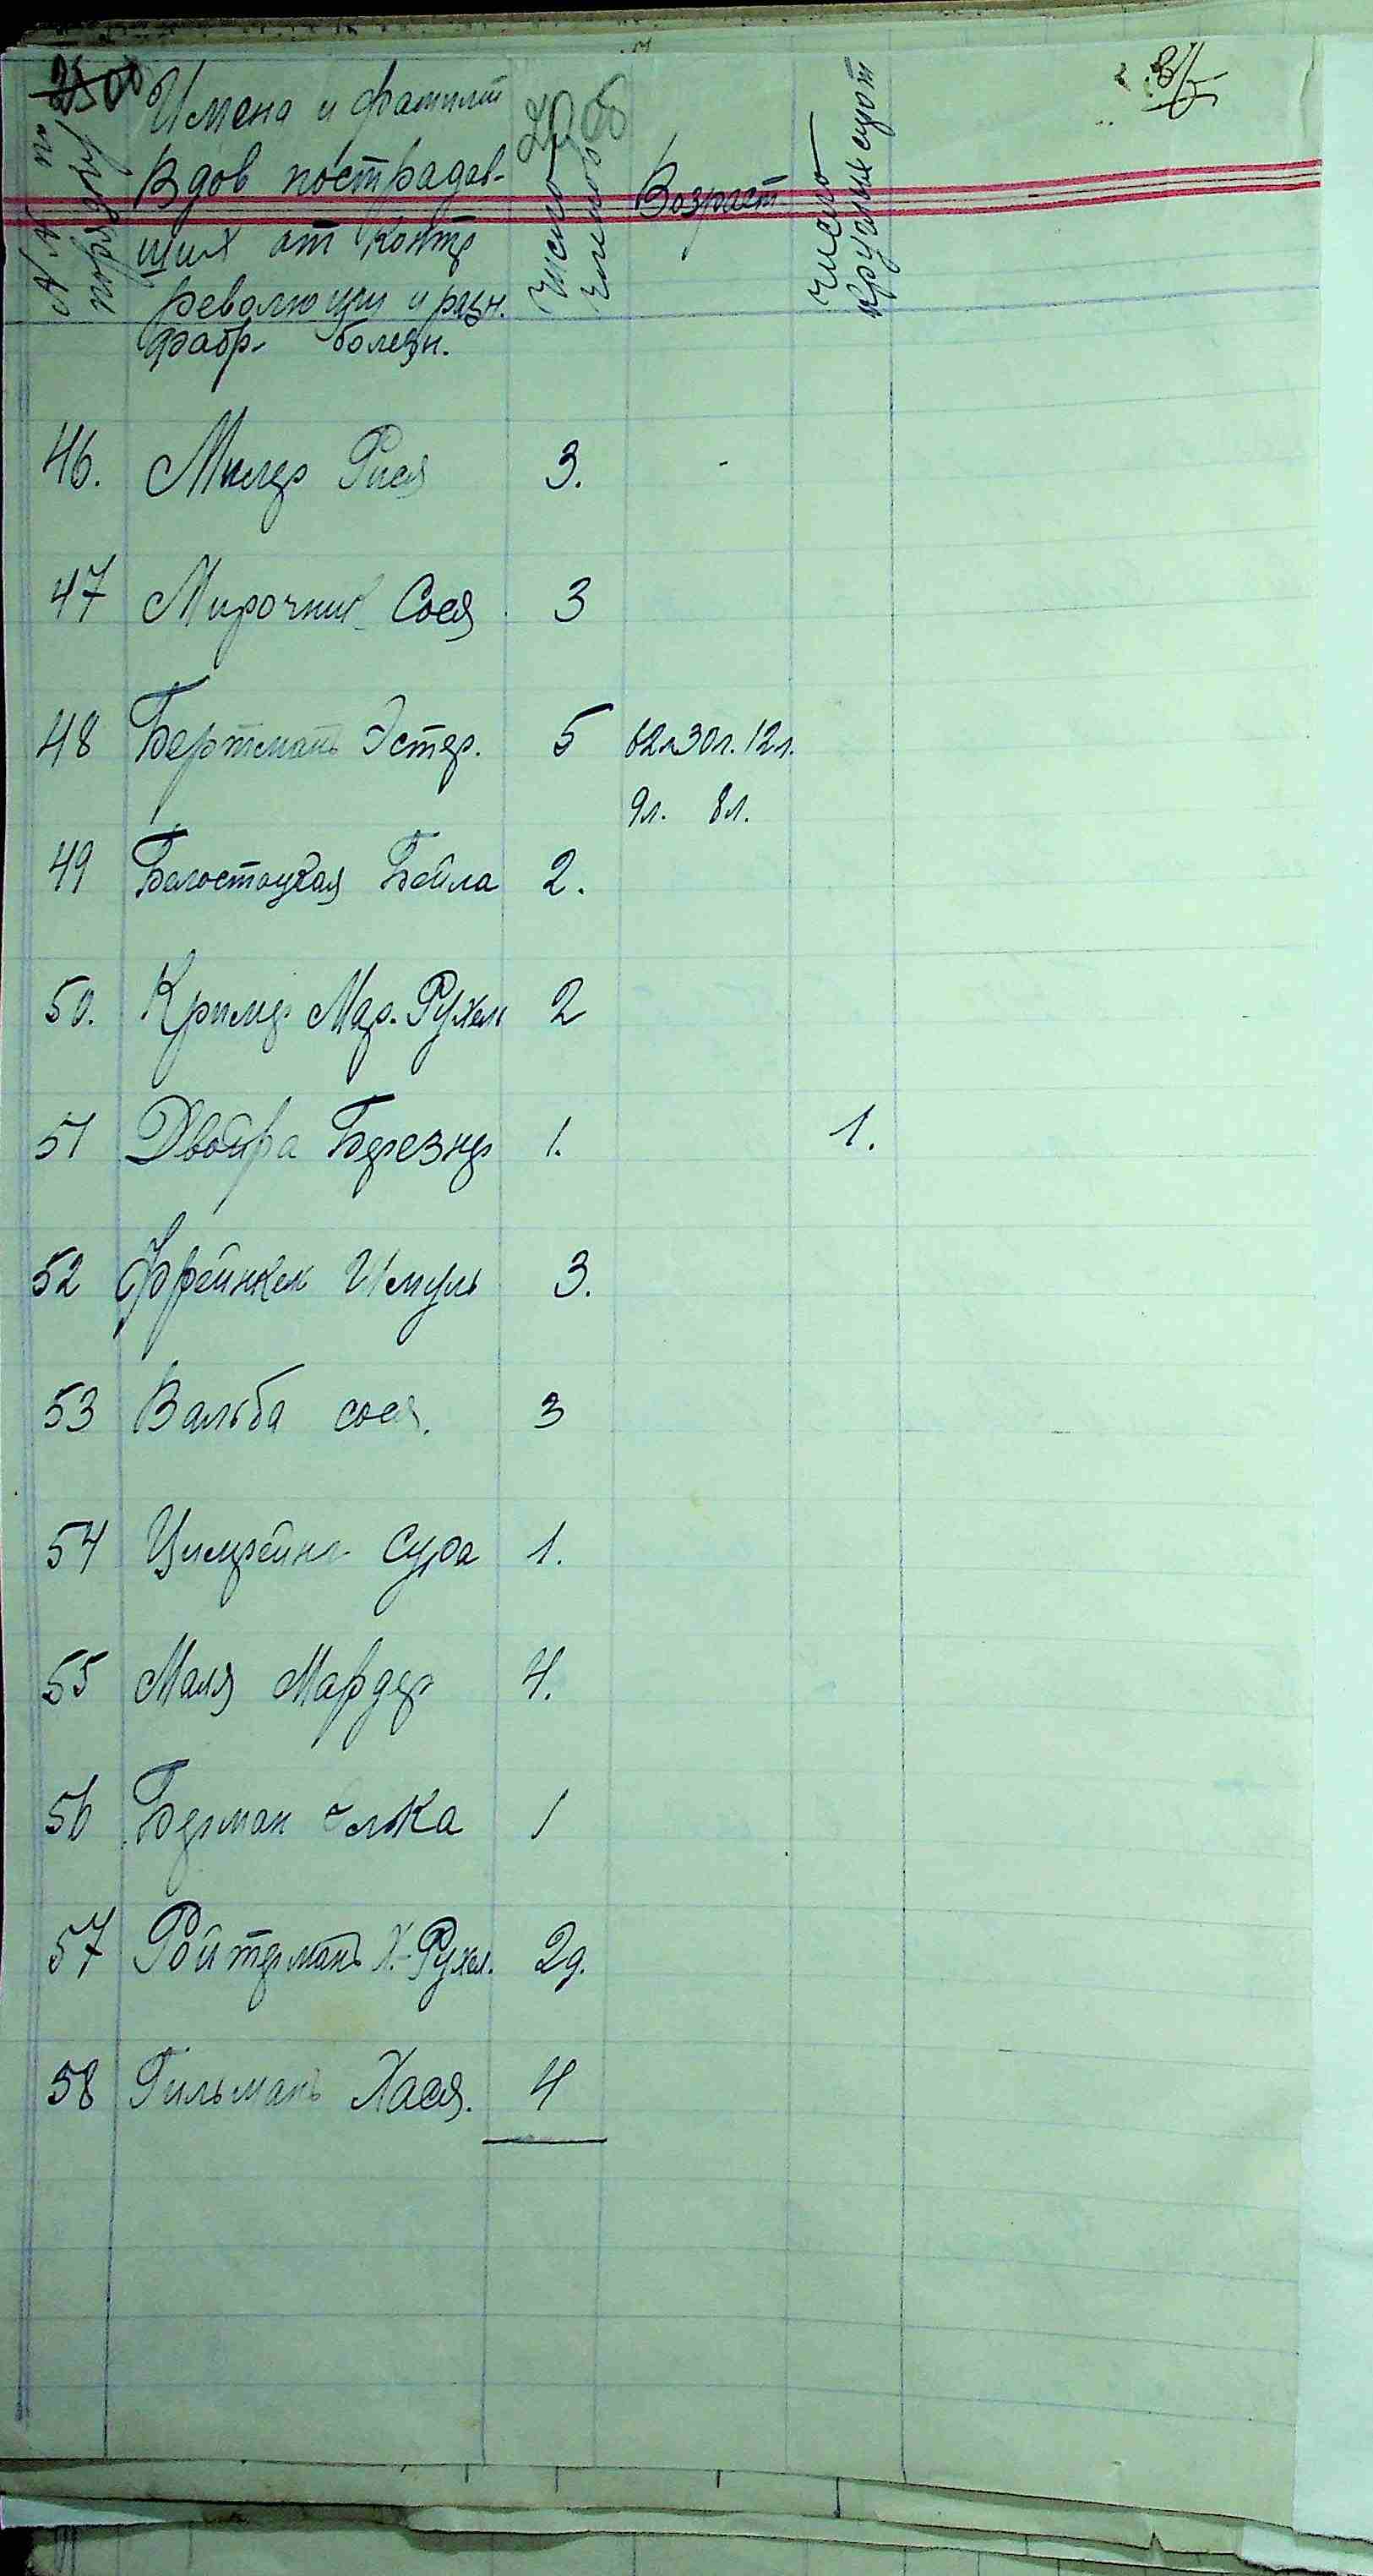 №№ по порядку
Имена и фамилии
вдов пострадав-
ших от контр
революции и разн.
забр. болезн.
Число
Возраст
Число круглых сирот
46. Милер Рися 3. -
47 Мирочник Сося 3
48 Бертман Эстер. 5 62л 30л. 12л.
9л. 8л.
49 Белостоцкая Бейла 2.
50. Кример Мар. Рухель 2
51 Двойра Березнер 1. 1.
52 Френкел Шмуль 3.
53 Вальба сося. 3
54 Сура 1.
55 Маля Мардер 4.
56 Берман Элка 1
57 Ройтерманъ Х.-Рухл. 2д.
58 Гильманъ Хася. 4